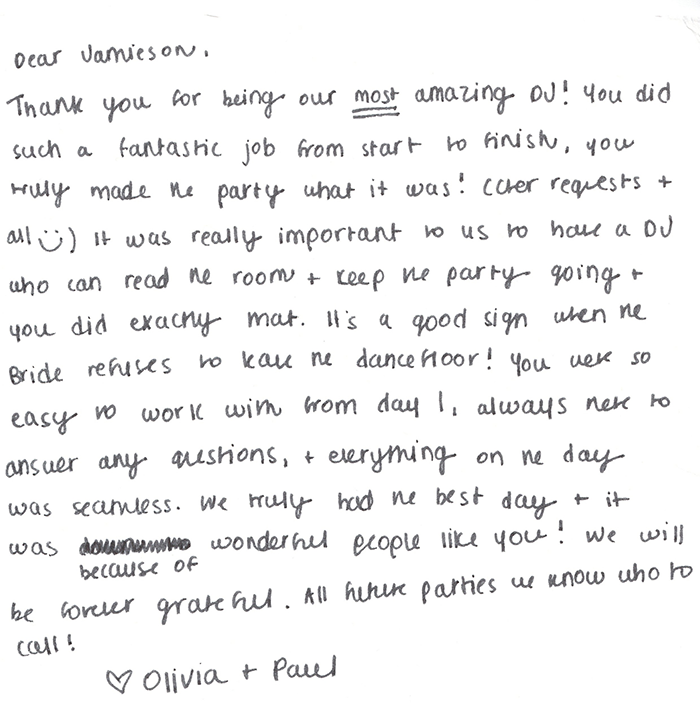 Dear Jamieson,
Thank you for being our most amazing DJ! You did
such a fantastic job from start to finish, you
truly made the party what it was! (Cher requests +
all ☺) It was really important to us to have a DJ
who can read the room + keep the party going +
you did exactly that. It's a good sign when the
Bride refuses to leave the dancefloor! You were so
easy to work with from day 1, always here to
answer any questions, + everything on the day
was seamless. We truly had the best day + it
was wonderful people like you! We will
because of
be forever grateful. All future parties we know who to
call!
♡ Olivia + Paul